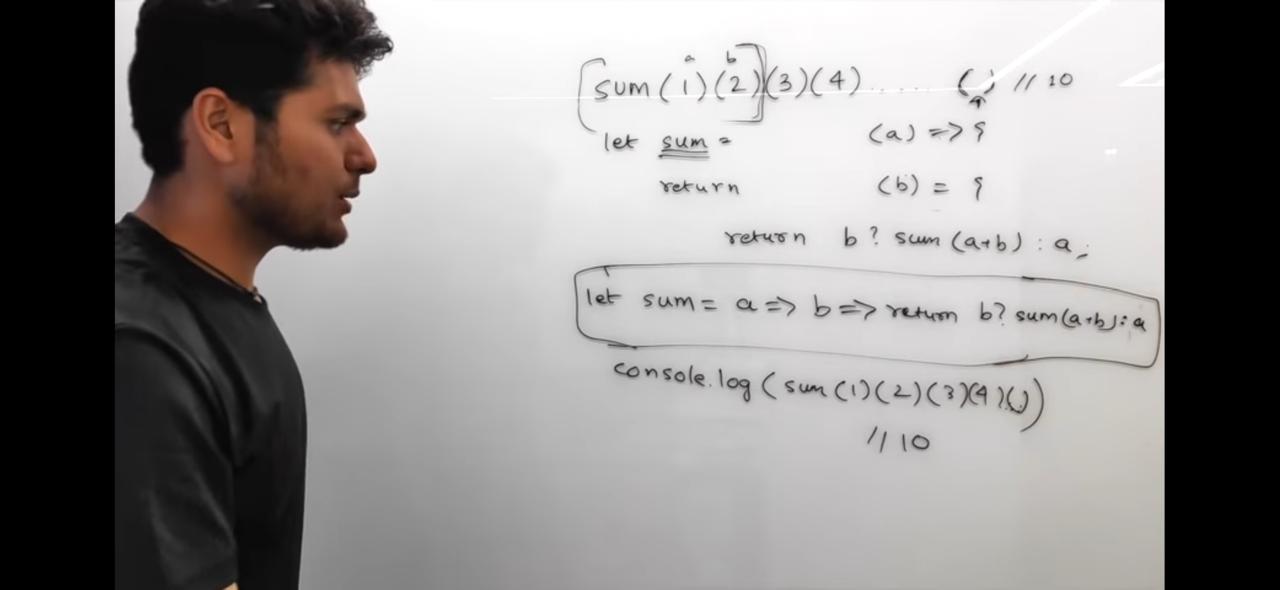 a b
sum(1)(2)(3)(4)...... () // 10
let sum = (a) => {
return (b) = {
return b? sum(a+b) : a;
let sum = a => b => return b? sum(a+b) : a
console.log(sum(1)(2)(3)(4)())
// 10